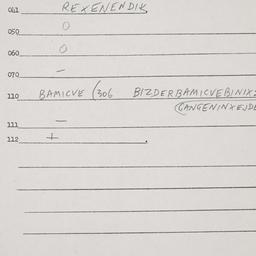 041 REXENENDIK
050 0
060 0
070 —
110 BAMICVE (306 BIZDERBAMICVEBINIX
(CANGENINXEJDE
111 —
112 +